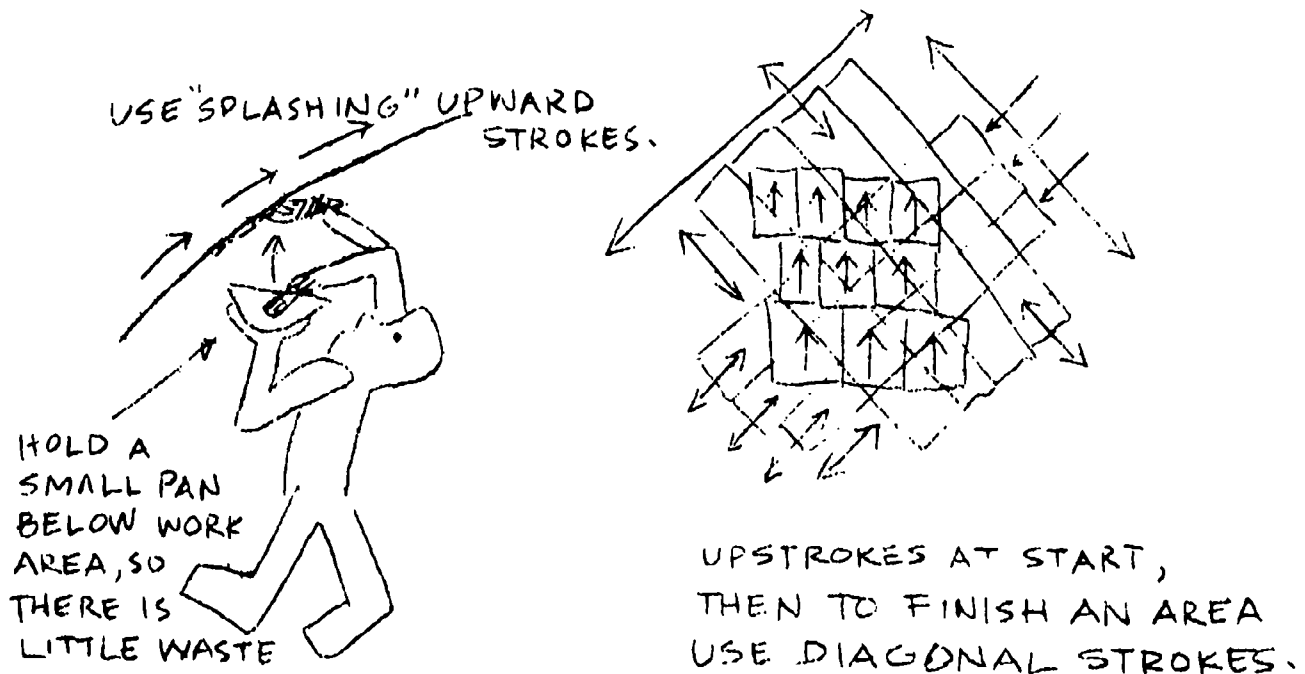 USE "SPLASHING" UPWARD
STROKES.
HOLD A
SMALL PAN
BELOW WORK
AREA, SO
THERE IS
LITTLE WASTE
UPSTROKES AT START,
THEN TO FINISH AN AREA
USE DIAGONAL STROKES.